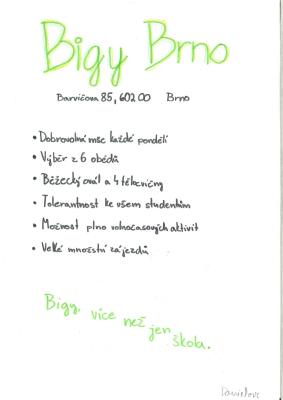 Bigy Brno
Barvičova 85, 602 00 Brno
• Dobrovolná mše každé pondělí
• Výběr z 6 obědů
• Běžecký ovál a 4 tělocvičny
• Tolerantnost ke všem studentům
• Možnost plno volnočasových aktivit
• Velké množství zájezdů
Bigy, více než jen škola.